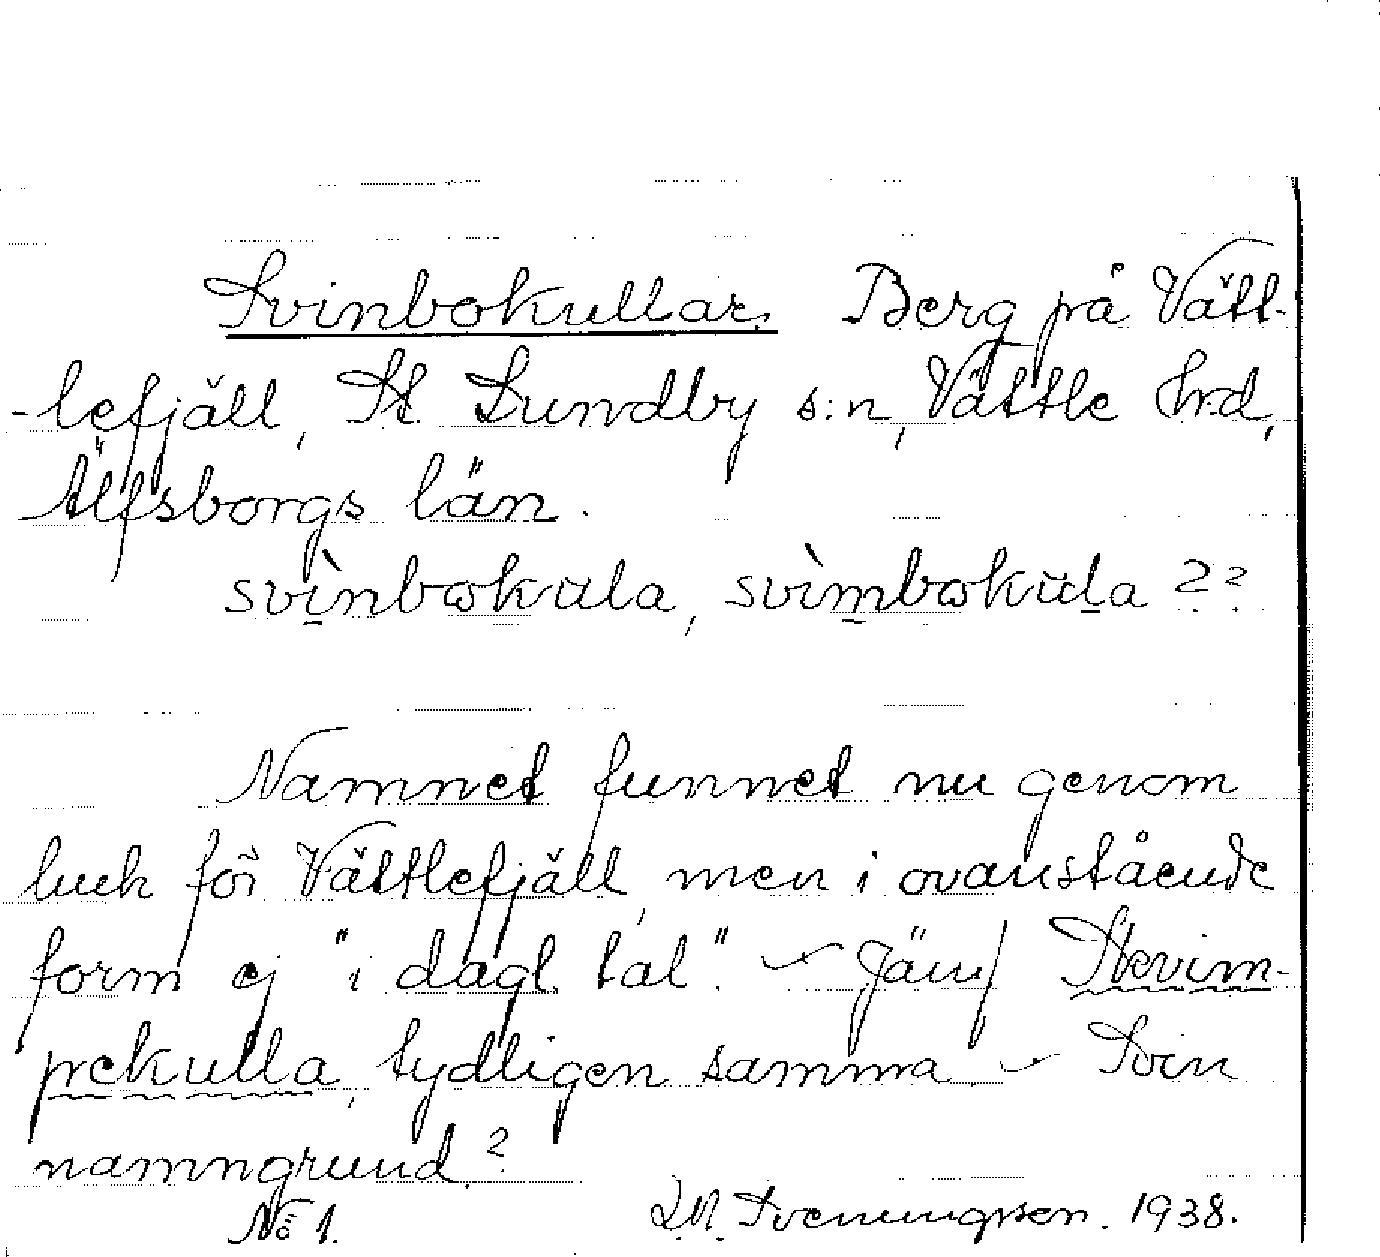 Svinbokullar. Berg på Vätt-
-lefjäll, St Lundby s:n, Vättle hrd,
Älfsborgs län.
svìnbokula, svìmbokula ??
Namnet funnet nu genom
luck för Vättlefjäll, men i ovanstående
form ej "i dagl. tal". - Jämf
prekulla, tydligen samma - Svin
namngrund?
No 1. Sveningsson. 1938.